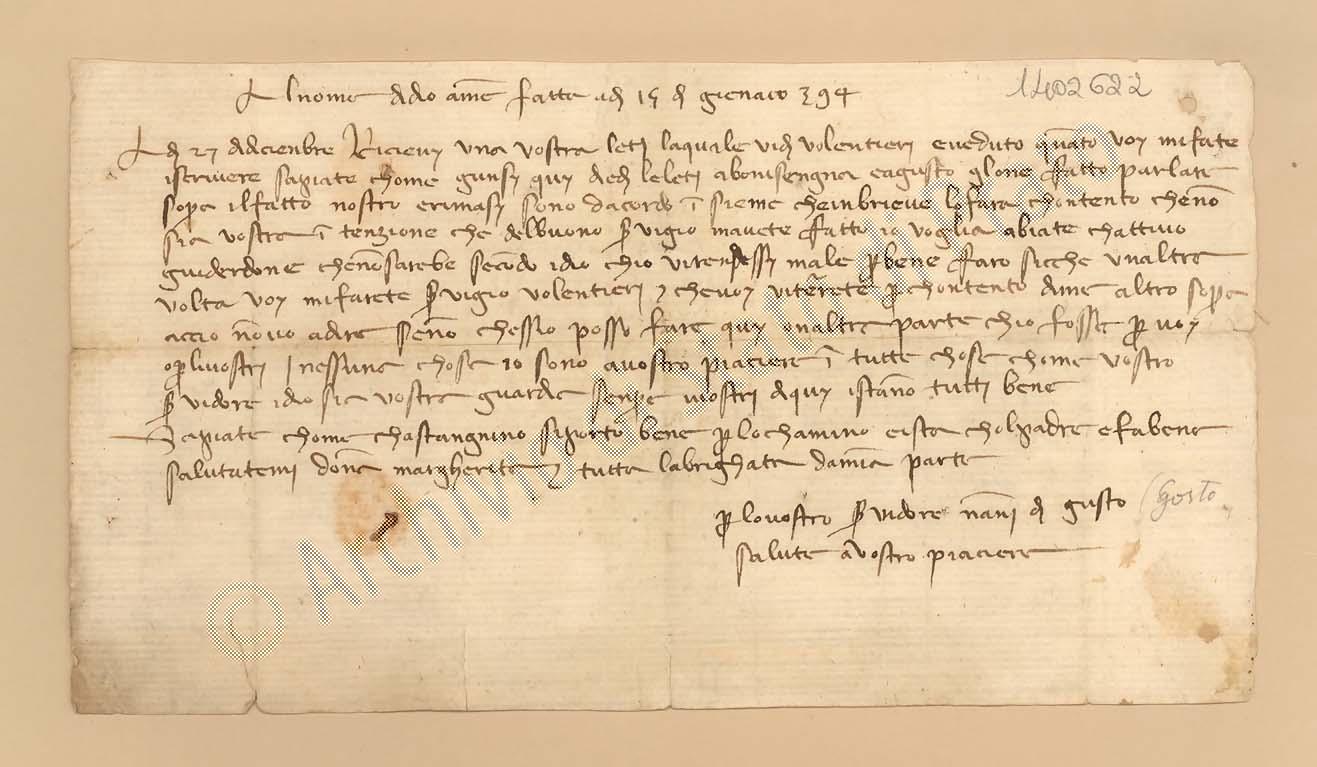 Al nome di dio ame fatta adi 15 di gienaio 394
1402622
A di 27 didicienbre Ricievy una vostra letj laquale vidj volentierj eveduto quāto voy mifate
iscrivere sapiate chome gunsy quy dedj leletj abonisengna eagusto glone fatto parlare
sopa ilfatto nostro erimasy sono dacordo ī sieme cheinbrieve lofara chontento chenō
sia vostra ī tenzione che delbuono svigio mavete ffatto io voglia abiate chattivo
guiderdone chenōsarebe secōdo idio chio virendessy male pbene ffaro sicche unaltra
volta voy mifarete svigio volentierj e chevoy viterete p chontento dime altro sopa
accio nōvo adire senō chessio posso fare quy onaltra parte chio fosse p voy
oplivostrj Inessuna chosa io sono avostro piaciere ī tutte chose chome vostro
svidore idio sia vostra guardia senpe ivostri diquy istāno tuttj bene
Sapiate chome chastangnino siporto bene p lochamino eista cholpadre efabene
salutatemi dona margherita e tutta labrighata damia parte
p lovostro svidore nāni di gusto (Gosto
salute a vostro piaciere
© Archivio di Stato di Prato